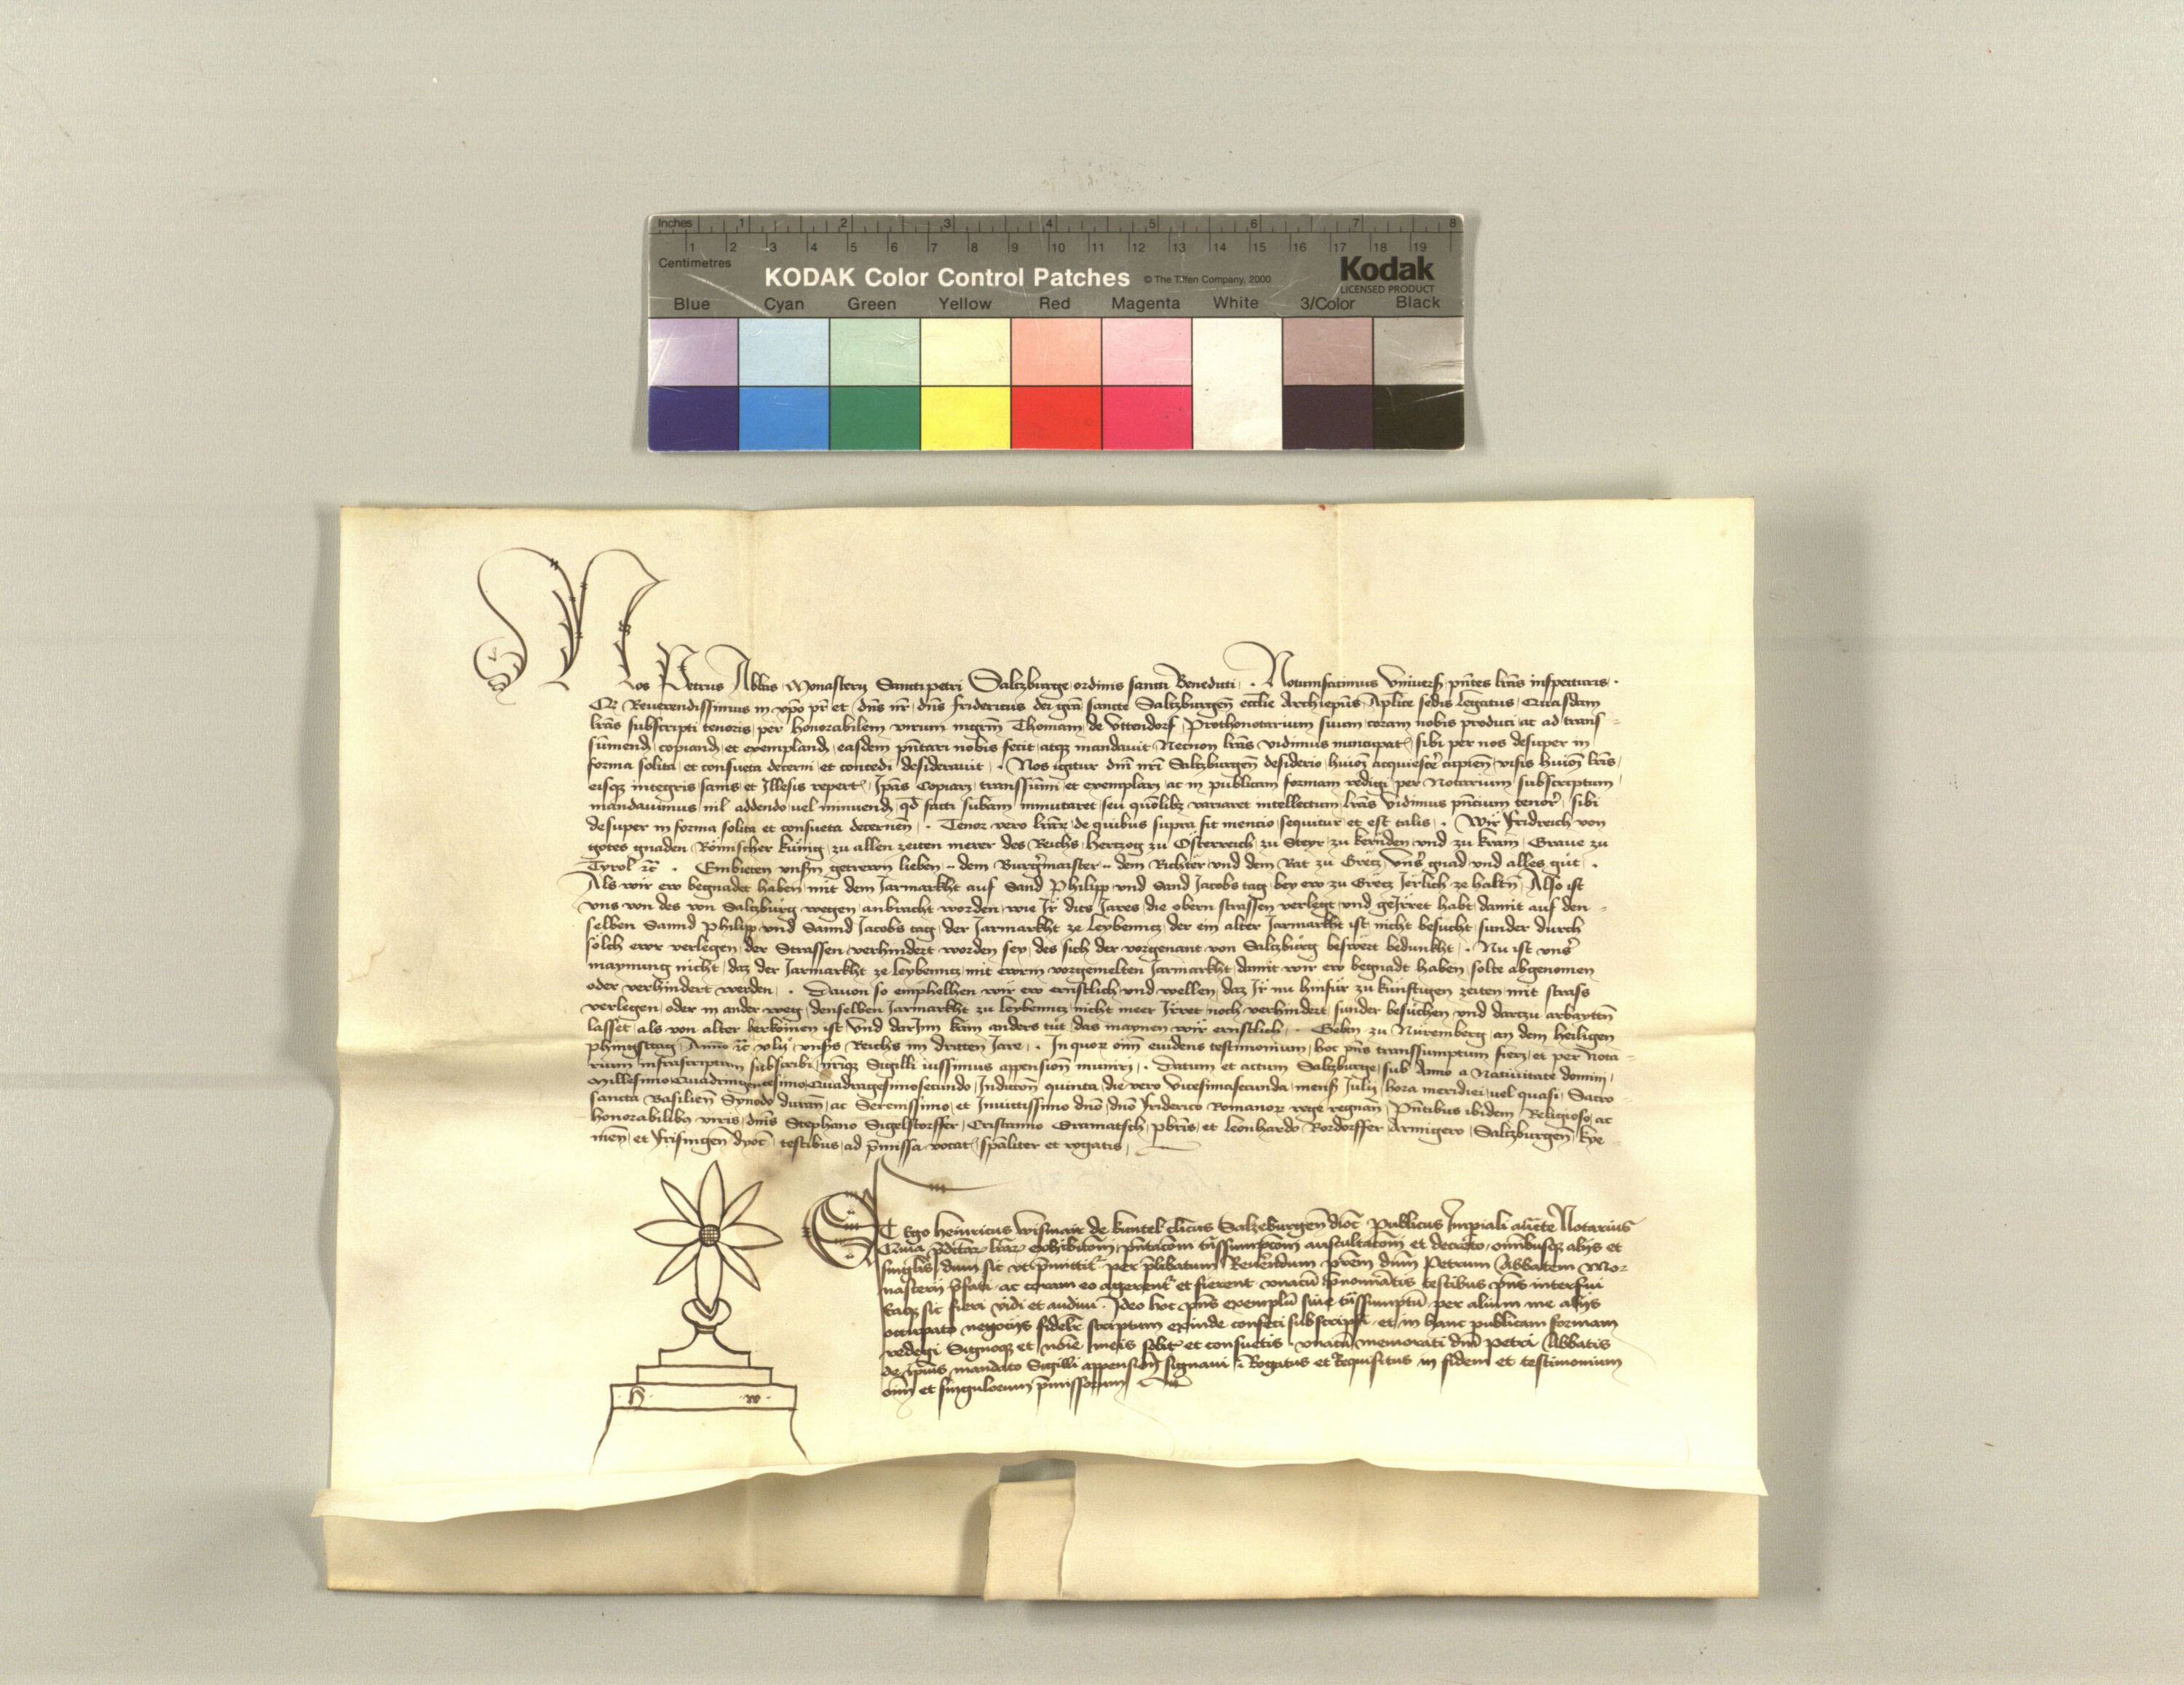 Inches 1 2 3 4 5 6 7 8
1 2 3 4 5 6 7 8 9 10 11 12 13 14 15 16 17 18 19
Centimetres
KODAK Color Control Patches © The Tiffen Company, 2000 Kodak
LICENSED PRODUCT
Blue Cyan Green Yellow Red Magenta White 3/Color Black
Nos Petrus Abbas Monasterij Sanctipetri Saltzburge ordinis sancti Benedicti . Notumfacimus Vniuersis pñtes lrãs inspecturis .
Qr Reuerendissimus in xpõ pr̃ et dñs nr̃ dñs fridericus dei grã sancte Saltzburgen̄ eccl̃ie Archiep̃us Ap̃lice sedis legatus Quasdam
lrãs subscripti tenoris per honorabilem virum mgrm̄ Thomam de Vttendorf Prothonotarium suum coram nobis produci ac ad trans-
sumend copiand et exempland easdem pñtari nobis fecit atqz mandauit Necnon lrãs vidimus nuncupat sibi per nos desuper in
forma solita et consueta decerni et concedi desiderauit . Nos igitur dñi nrĩ Saltzburgen̄ desiderio huiõi acquiescẽ cupien̄ visis huiõi lrĩs
eisqz integris sanis et Illesis repert Ip̃as Copiarj transsum̄i et exemplarj ac in publicam formam redigi per Notarium subscriptum
mandauimus nil addendo uel minuend qd facti subãm immutaret seu quõlibz variaret intellectum lrãs vidimus pñcium tenor̃ sibi
desuper in forma solita et consueta decernen̄ . Tenor vero lrãr de quibus supra fit mencio sequitur et est talis . Wir Fridreich von
gotes gnaden Römischer künig zu allen zeiten merer des Reichs hertzog zu Österreich zu Steyr zu kernden und zu krain Graue zu
Tyrol ꝛc̃ . Embieten vnsẽn getrewn lieben .. dem Burgẽrmaister .. dem Richter vnd dem Rat zu Gretz vnsẽ gnad vnd alles güt .
Als wir ew begnadet haben mit dem Jarmarkht auf Sand Philipp vnd Sand Jacobs tag bey ew zu Gretz Jërlich ze haltn̄ Also ist
vns von des von Saltzburg wegen anbracht worden wie Ir dits Jares die obern strassen verlegt vnd geJrret habt damit auf den-
selben Sannd Philipp vnd Sannd Jacobs tag der Jarmarkht ze Leybentz der ein alter Jarmarkht ist nicht besucht sunder durch
solch ewr verlegen der Strassen verhindert worden sey des sich der vorgenant von Saltzburg beswërt bedunkht . Nu ist vnsẽ
maynung nicht daz der Jarmarkht ze leybentz mit ewrm vorgemelten Jarmarkht damit wir ew begnadt haben solte abgenomen
oder verhindert werden . Dauon so emphelhen wir ew ernstlich vnd wellen daz Ir nu hinfür zu künftigen zeiten mit strass
verlegen oder in ander weg denselben Jarmarkht zu leybentz nicht meer Irret noch verhindert sunder besuchen vnd dartzu arbayttn̄
lasset als von alter herkömen ist Vnd darJnn kain anders tüt das maynen wir ernstlich . Geben zu Nüremberg an dem heiligen
phingsttag Anno ꝛc̃ xlij vnsẽs Reichs im dritten Jare . In quor om̄ euidens testimonium hoc pñs transsumptum fierj et per Nota-
rium infrascriptum subscribi nrĩqz Sigilli iussimus appension̄ munirj . Datum et actum Saltzburge sub Anno a Natiuitate domini
Millesimo Quadringentesimo Quadragesimosecundo Indiction̄ quinta die vero Vicesimasecunda mens̄ Julij hora meridiei uel quasi Sacro-
sancta Basilien̄ Synodo duran̄ ac Serenissimo et Inuictissimo dnõ dnõ Friderico Romanor rege regnan̄ Pñtibus ibidem Religioso ac
honorabilibz viris dñis Stephano Sigelstorffer Cristanno Gramatsch pbrĩs et Leonhardo Rordorffer Armigero Saltzburgen̄ kye-
men̄ et Frisingen̄ dyoc̄ testibus ad p̃missa vocat sp̃aliter et rogatis
ET Ego heinricus Wismair de kuntel clĩcus Salczeburgen̄ dioc̄ Publicus Imp̃iali auc̄te Notarius
Quia p̃dictar lrãr exhibitoĩ pñtacoĩ trãssumpcoĩ auscultacoĩ et decreto om̄ibusqz alijs et
singlis dum sic vt p̃mittit per p̃libatum Reuẽrendum prẽm dñm Petrum Abbatem Mo-
nasterij p̃fati ac coram eo agerent et fierent vnacũ p̃nomĩatis testibus pñs interfui
Eaqz sic fieri vidi et audiui . Ideo hoc pñs exemplũ siue trãssumptũ per alium me alijs
occupato negocijs fidelr̃ scriptum exinde confeci subscripsi et in hanc publicam formam
redegi Signoqz et noĩe meis solit et consuetis vnacũ memorati dñi Petri Abbatis
de ip̃ius mandato Sigilli appension̄ signaui Rogatus et Requisitus in fidem et testimonium
om̄ et singulorum p̃missorum
H W